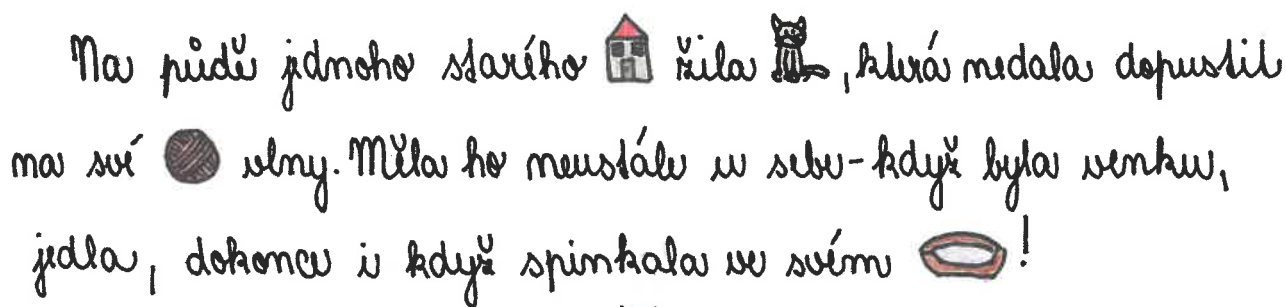 Na půdě jednoho starého žila , která nedala dopustit
na své vlny. Měla ho neustále u sebe - když byla venku,
jedla, dokonce i když spinkala ve svém !